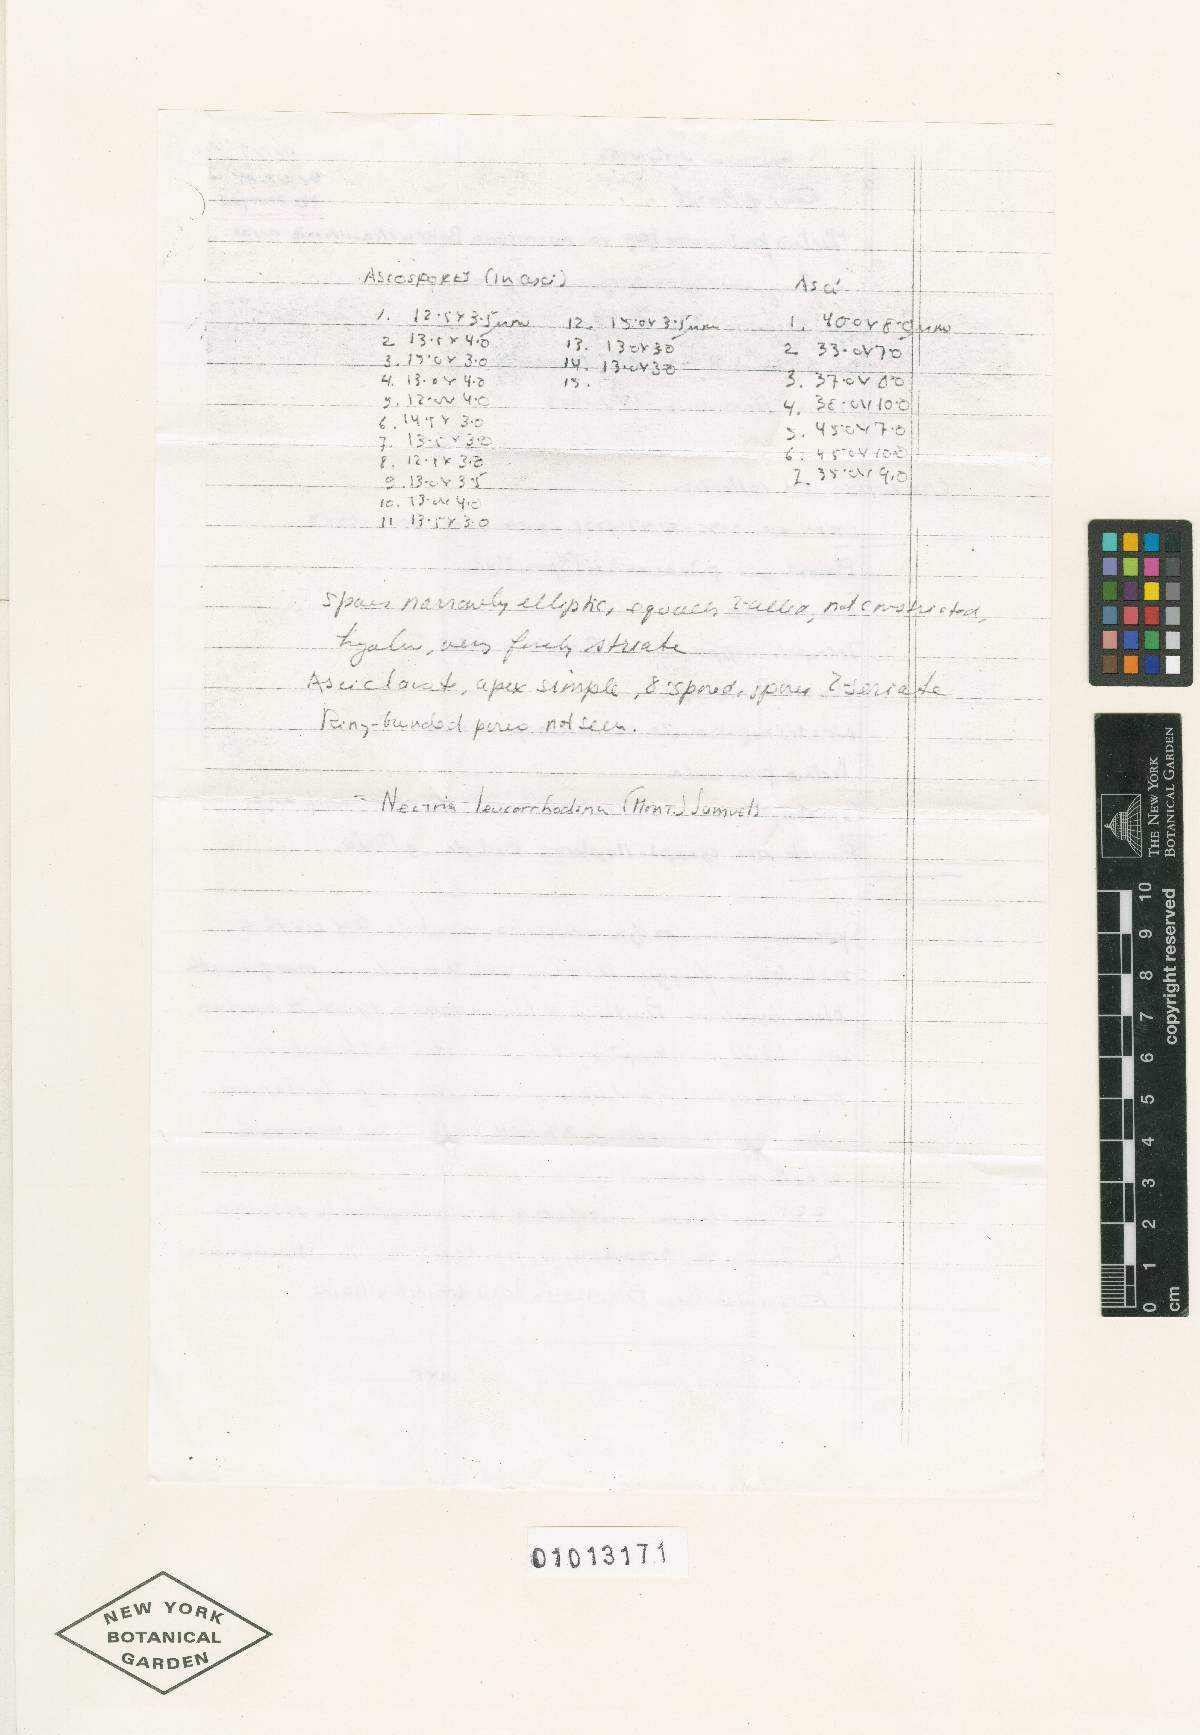 Ascospores (in asci)
Asci
1. 12.5 x 3.5 µm
2. 13.5 x 4.0
3. 15.0 x 3.0
4. 13.0 x 4.0
5. 12.0 x 4.0
6. 14.5 x 3.0
7. 13.5 x 3.0
8. 12.5 x 3.0
9. 13.0 x 3.5
10. 13.0 x 4.0
11. 13.5 x 3.0
12. 15.0 x 3.5 µm
13. 13.0 x 3.0
14. 13.0 x 3.0
15.
1. 40.0 x 8.0 µm
2. 33.0 x 7.0
3. 37.0 x 8.0
4. 38.0 x 10.0
5. 45.0 x 7.0
6. 45.0 x 10.0
7. 35.0 x 9.0
Spores narrowly elliptic, equally 2-celled, not constricted,
hyaline, very finely striate
Asci clavate, apex simple, 8-spored, spores 2-seriate
Ring-banded pores not seen.
= Nectria leucorrhodina (Mont.) Samuels
01013171
NEW YORK
BOTANICAL
GARDEN
THE NEW YORK
BOTANICAL GARDEN
copyright reserved
10
9
8
7
6
5
4
3
2
1
0
cm